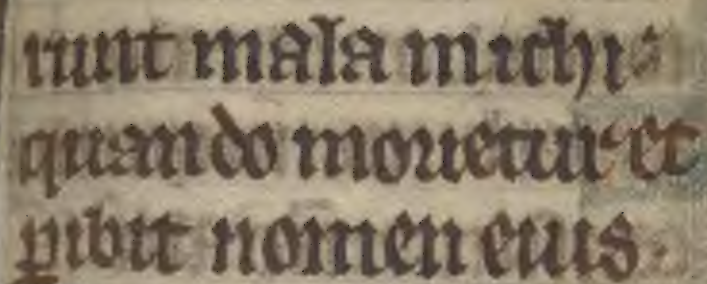 runt mala michi:
quando mouetur et
ꝑibit nomen eius.